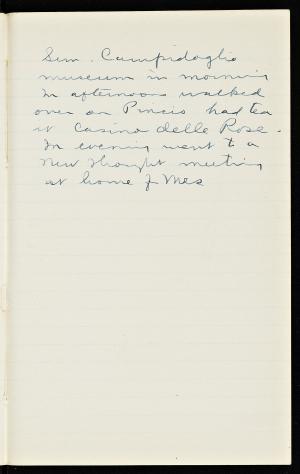 Sem. Campidoglio
museum in morning
In afternoon walked
over on Pincio had tea
at Casino delle Rose.
In evening went to a
New Thought meeting
at home of Mrs